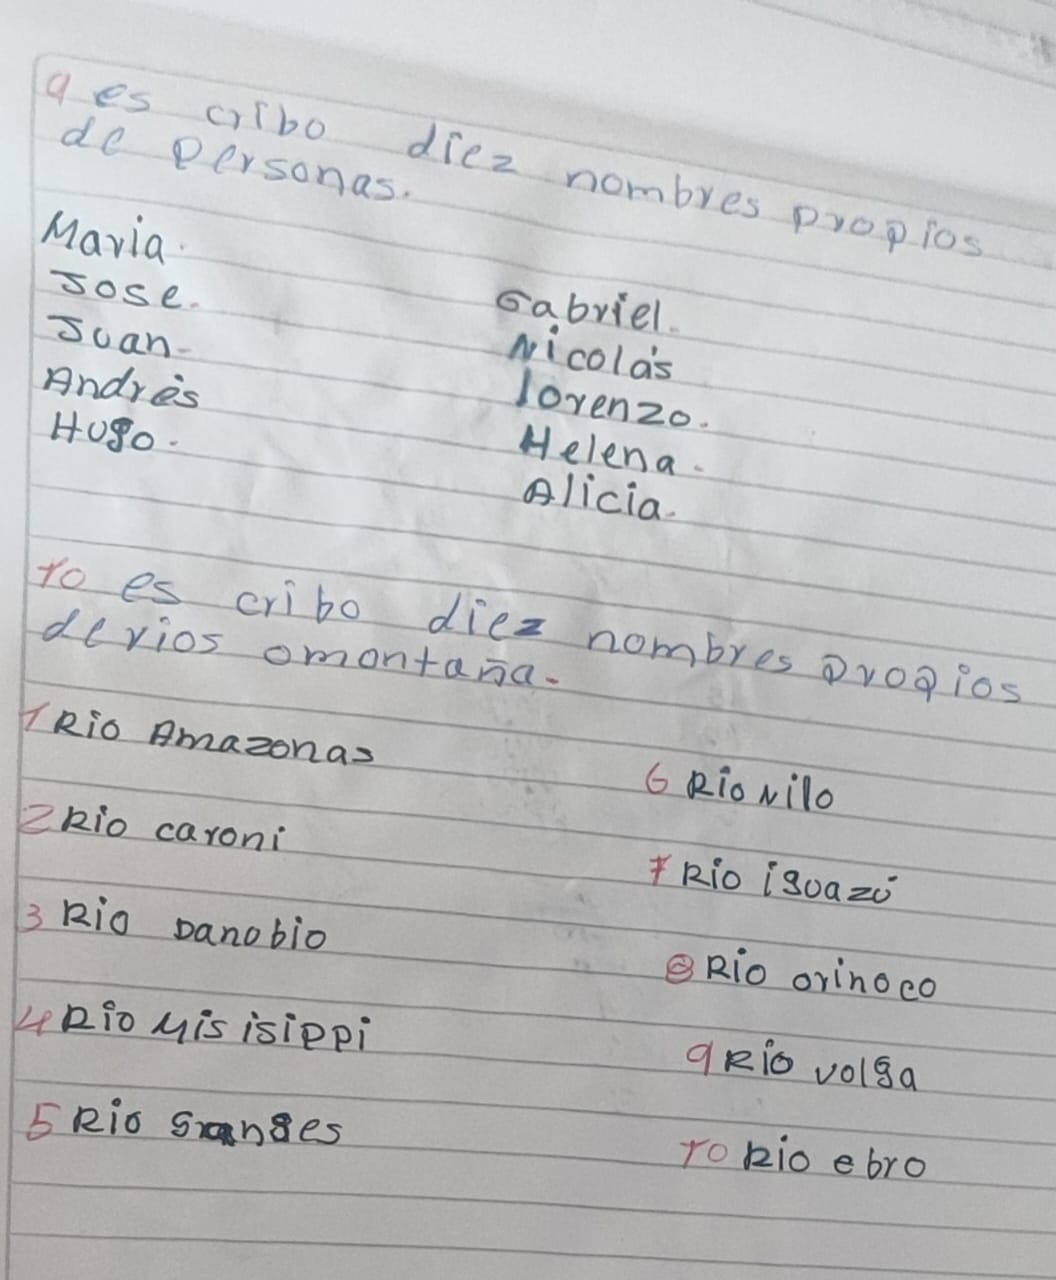 9 es cribo diez nombres propios
de personas.
Maria.
Jose.
Juan.
Andrés
Hugo.
Gabriel.
Nicolás
lorenzo.
Helena.
Alicia.
10 es cribo diez nombres propios
de rios omontaña.
1 Rio Amazonas
2 Rio caroni
3 Rio Danobio
4 Rio Misisippi
5 Rio Ganges
6 Rio Nilo
7 Rio iguazú
8 Rio orinoco
9 Rio volga
10 Rio ebro